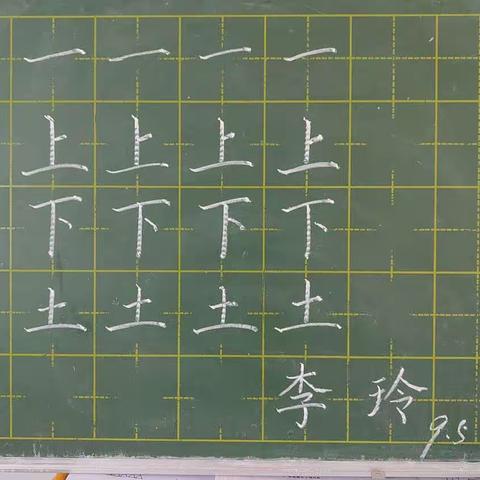 一 一 一 一
上 上 上 上
下 下 下 下
土 土 土 土
李 玲
9.5